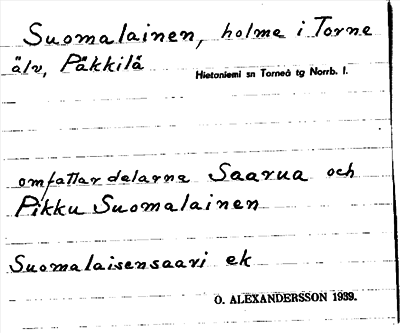 Suomalainen, holme i Torne
älv, Päkkilä
Hietaniemi sn Torneå tg Norrb. l.
omfattar delarna Saarua och
Pikku Suomalainen
Suomalaisensaari ek
O. ALEXANDERSSON 1939.